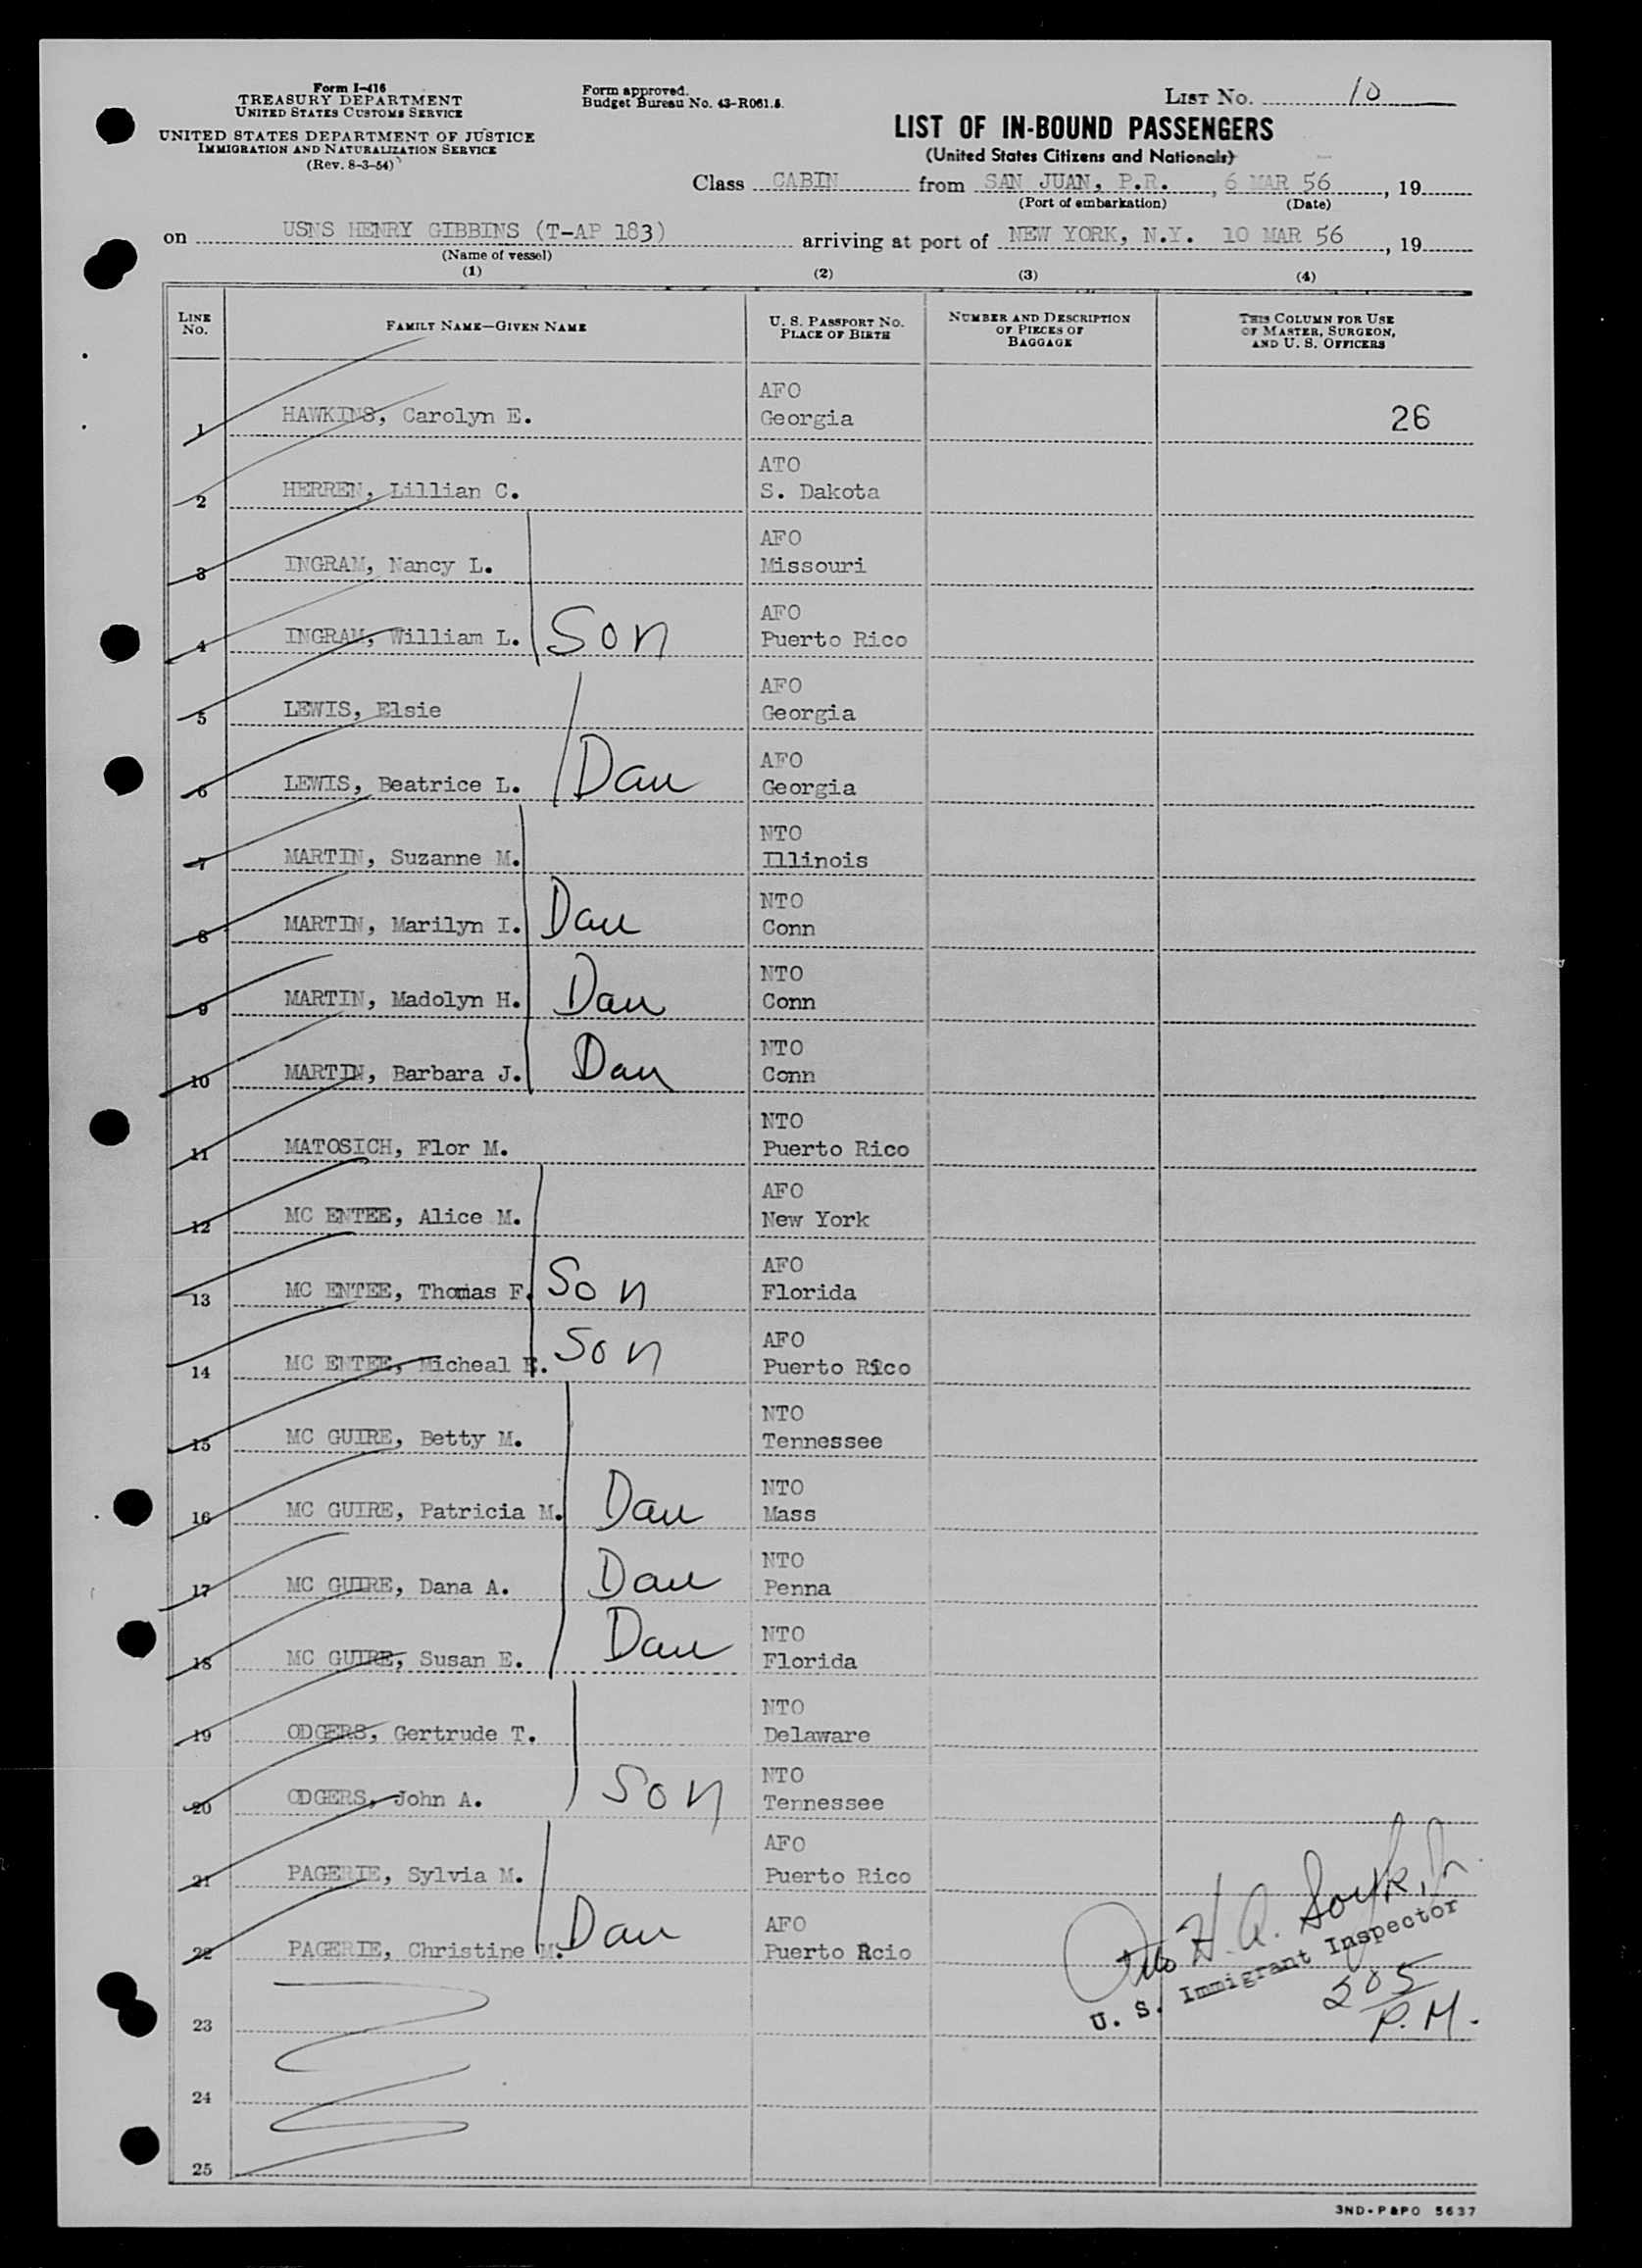 Form I-416
TREASURY DEPARTMENT
UNITED STATES CUSTOMS SERVICE
UNITED STATES DEPARTMENT OF JUSTICE
IMMIGRATION AND NATURALIZATION SERVICE
(Rev. 8-3-54)
Form approved.
Budget Bureau No. 43-R061.5.
LIST NO. 10
LIST OF IN-BOUND PASSENGERS
(United States Citizens and Nationals)
Class CABIN from SAN JUAN, P.R., 6 MAR 56, 19
(Port of embarkation) (Date)
on USNS HENRY GIBBINS (T-AP 183) arriving at port of NEW YORK, N.Y. 10 MAR 56, 19
(Name of vessel)
(1) (2) (3) (4)
LINE NO. FAMILY NAME—GIVEN NAME U. S. PASSPORT NO. PLACE OF BIRTH NUMBER AND DESCRIPTION OF PIECES OF BAGGAGE THIS COLUMN FOR USE OF MASTER, SURGEON, AND U. S. OFFICERS
AFO
1 HAWKINS, Carolyn E. Georgia 26
ATO
2 HERREN, Lillian C. S. Dakota
AFO
3 INGRAM, Nancy L. Missouri
AFO
4 INGRAM, William L. Son Puerto Rico
AFO
5 LEWIS, Elsie Georgia
AFO
6 LEWIS, Beatrice L. Dau Georgia
NTO
7 MARTIN, Suzanne M. Illinois
NTO
8 MARTIN, Marilyn I. Dau Conn
NTO
9 MARTIN, Madolyn H. Dau Conn
NTO
10 MARTIN, Barbara J. Dau Conn
NTO
11 MATOSICH, Flor M. Puerto Rico
AFO
12 MC ENTEE, Alice M. New York
AFO
13 MC ENTEE, Thomas F. Son Florida
AFO
14 MC ENTEE, Micheal E. Son Puerto Rico
NTO
15 MC GUIRE, Betty M. Tennessee
NTO
16 MC GUIRE, Patricia M. Dau Mass
NTO
17 MC GUIRE, Dana A. Dau Penna
NTO
18 MC GUIRE, Susan E. Dau Florida
NTO
19 ODGERS, Gertrude T. Delaware
NTO
20 ODGERS, John A. Son Tennessee
AFO
21 PAGERIE, Sylvia M. Puerto Rico
AFO
22 PAGERIE, Christine M. Dau Puerto Rcio
Otto H. A.
U. S. Immigrant Inspector
205
P.M.
23
24
25
3ND-P&PO 5637